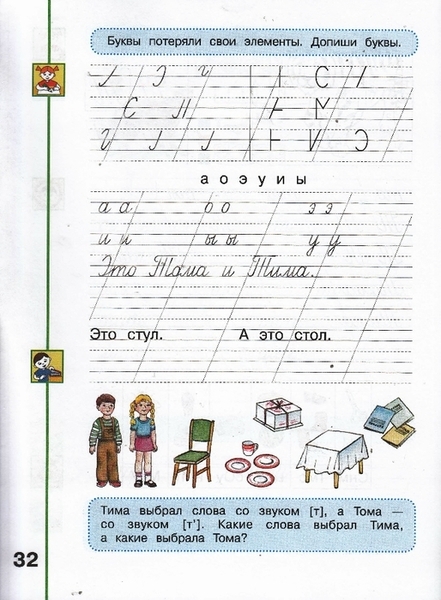 Буквы потеряли свои элементы. Допиши буквы.
а о э у и ы
а а о о э э
и и ы ы у у
Это Тома и Тима.
Это стул. А это стол.
Тима выбрал слова со звуком [т], а Тома —
со звуком [т']. Какие слова выбрал Тима,
а какие выбрала Тома?
32